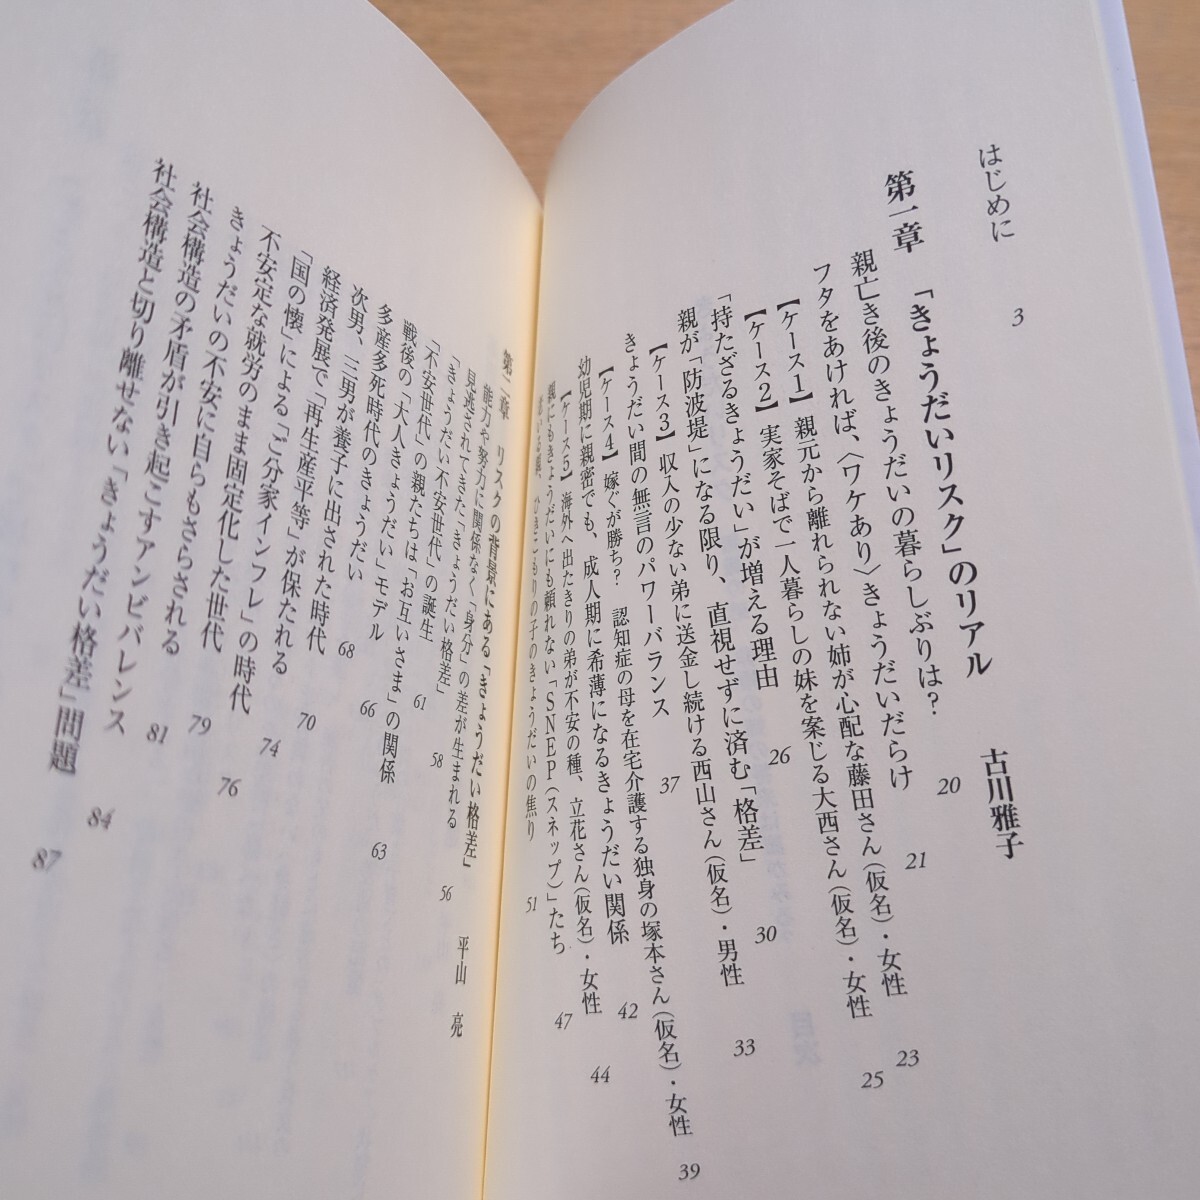 はじめに 3
第一章 「きょうだいリスク」のリアル 古川雅子
親亡き後のきょうだいの暮らしぶりは? 20
フタをあければ、〈ワケあり〉きょうだいだらけ 21
【ケース1】親元から離れられない姉が心配な藤田さん(仮名)・女性 23
【ケース2】実家そばで一人暮らしの妹を案じる大西さん(仮名)・女性 25
「持たざるきょうだい」が増える理由 26
親が「防波堤」になる限り、直視せずに済む「格差」 30
【ケース3】収入の少ない弟に送金し続ける西山さん(仮名)・男性 33
きょうだい間の無言のパワーバランス 37
【ケース4】嫁ぐが勝ち? 認知症の母を在宅介護する独身の塚本さん(仮名)・女性 39
幼児期に親密でも、成人期に希薄になるきょうだい関係 42
【ケース5】海外へ出たきりの弟が不安の種、立花さん(仮名)・女性 44
親にもきょうだいにも頼れない「SNEP(スネップ)」たち 47
老いる親、ひきこもりの子のきょうだいの焦り 51
第二章 リスクの背景にある「きょうだい格差」 平山 亮
能力や努力に関係なく「身分」の差が生まれる 56
見逃されてきた「きょうだい格差」 58
「きょうだい不安世代」の誕生 61
「不安世代」の親たちは「お互いさま」の関係 63
戦後の「大人きょうだい」モデル 66
多産多死時代のきょうだい 68
次男、三男が養子に出された時代 70
経済発展で「再生産平等」が保たれる 74
「国の懐」による「ご分家インフレ」の時代 76
不安定な就労のまま固定化した世代 79
きょうだいの不安に自らもさらされる 81
社会構造の矛盾が引き起こすアンビバレンス 84
社会構造と切り離せない「きょうだい格差」問題 87